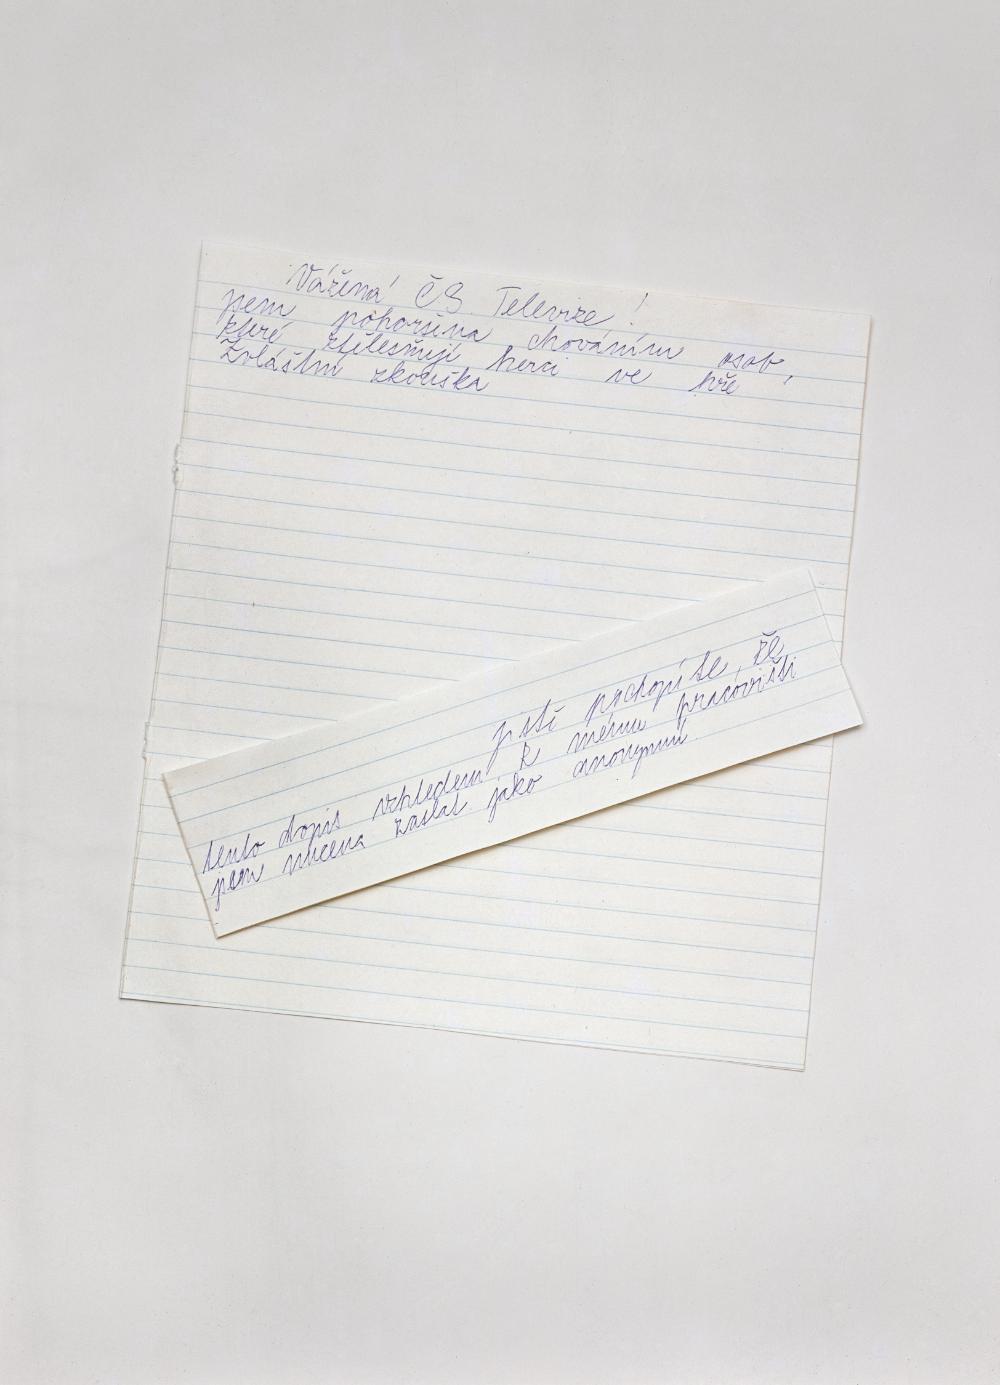 Vážená ČS. Televize!
jsem pohoršena chováním osob,
které ztělesňují herci ve hře
Zvláštní zkouška
jistě pochopíte, že
tento dopis vzhledem k mému pracovišti
jsem nucena zaslat jako anonymní